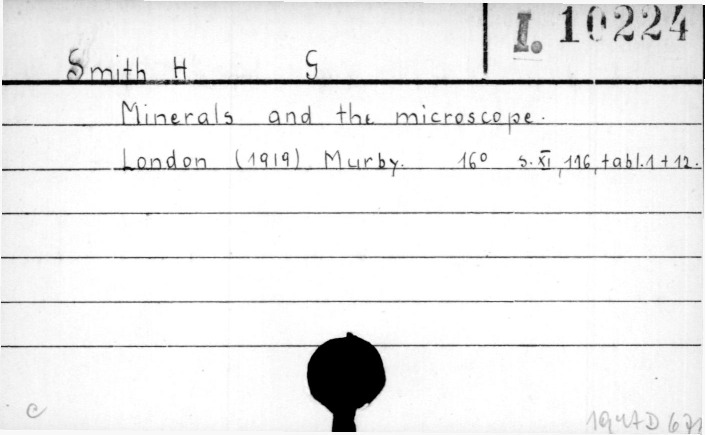 I. 10224
Smith H G
Minerals and the microscope.
London (1919) Murby. 16° s. XI, 116, tabl. 1 + 12.
c